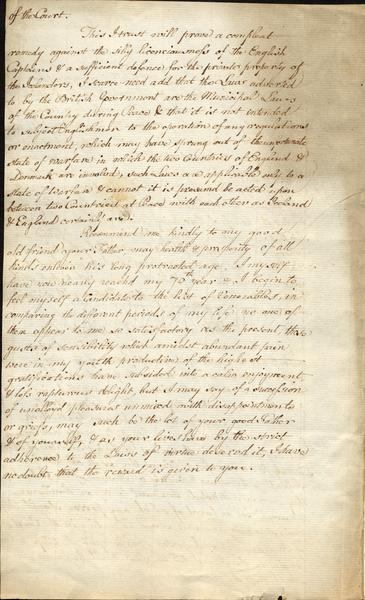 of the Court.
This I trust will prove a compleat
remedy against the silly licenciousness of the English
Captains & a sufficient defence for the private property of
the Islanders, I scarce need add that the Laws adverted
to by the British Government are the Municipal Laws
of the Country during Peace & that it is not intended
to subject Englishmen to the operation of any regulations
or enactment, which may have sprung out of the unfortunate
state of warfare in which the two Countries of England &
Denmark are involved, such Laws are applicable only to a
state of Warfare & cannot it is presumd be acted upon
between two Countries at Peace with each other as Iceland
& England certainly are.
Recommend me kindly to my good
old friend your Father may health & prosperity of all
kinds enliven his long protracted age, I myself
have now nearly reachd my 70th year & I begin to
feel myself a Candidate to the list of Venerables, in
comparing the different periods of my life no one of
them appear to me so satisfactory as the present, the
gusts of sensibility which amidst abundant pain
were in my youth productive of the highest
gratifications have subsided into a calm enjoyment
of less rapturous delight, but I may say of a succession
of unalloyd pleasures unmixed with disappointments
or griefs, may such be the lot of your good Father
& of yourself, & as your lives have by the strict
adherence to the Laws of virtue deserved it, I have
no doubt that the reward is given to you.